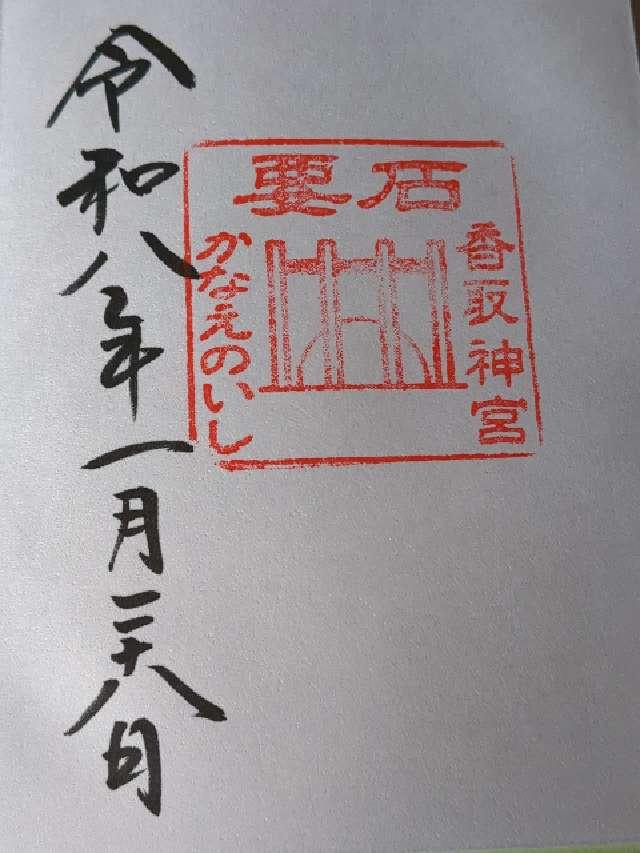 要石
香取神宮
かなえのいし
令和八年一月二十八日